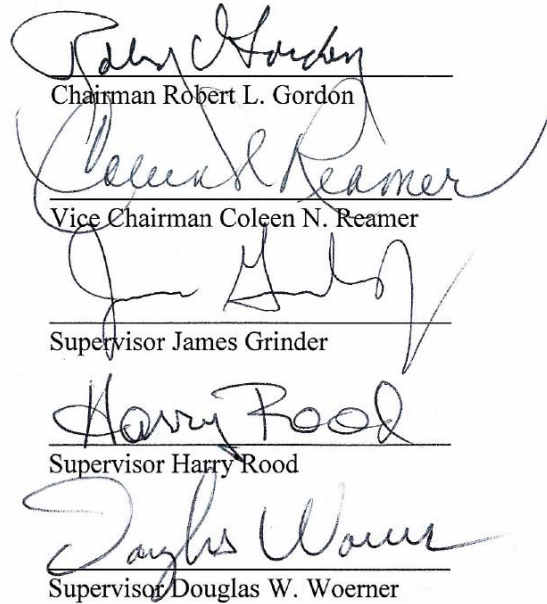 Chairman Robert L. Gordon
Coleen N Reamer
Vice Chairman Coleen N. Reamer
Supervisor James Grinder
Harry Rood
Supervisor Harry Rood
Douglas Woerner
Supervisor Douglas W. Woerner